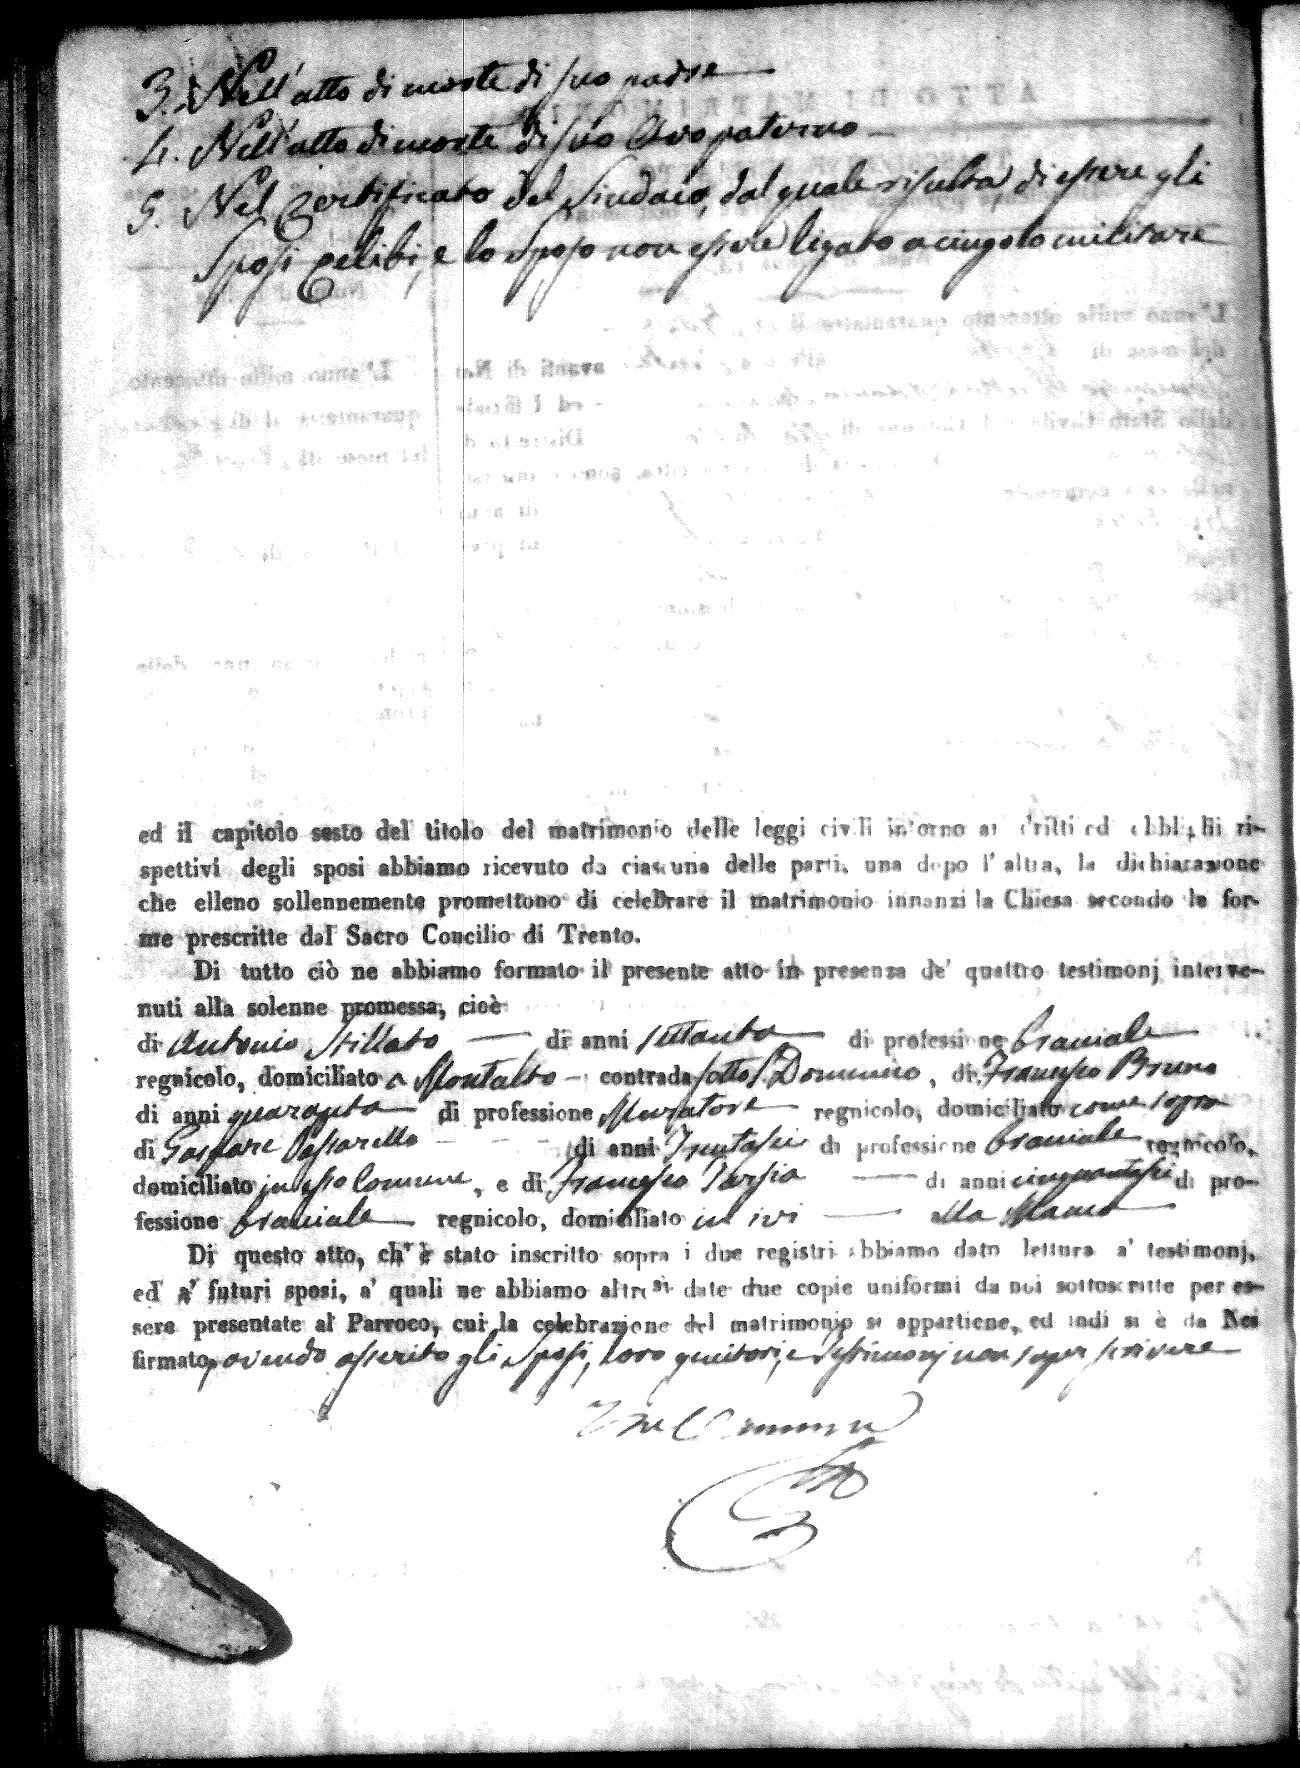 3. Nell'atto di morte di suo padre
4. Nell'atto di morte di suo Avo paterno
5. Nel Certificato del Sindaco, dal quale risulta di essere gli
Sposi celibi, e lo Sposo non essere ligato a cingolo militare
ed il capitolo sesto del titolo del matrimonio delle leggi civili intorno ai dritti ed obblighi ri-
spettivi degli sposi abbiamo ricevuto da ciascuna delle parti, una dopo l'altra, la dichiarazione
che elleno sollennemente promettono di celebrare il matrimonio innanzi la Chiesa secondo le for-
me prescritte dal Sacro Concilio di Trento.
Di tutto ciò ne abbiamo formato il presente atto in presenza de' quattro testimonj interve-
nuti alla solenne promessa, cioè
di Antonio Stillato di anni settanta di professione braciale
regnicolo, domiciliato a Montalto contrada sotto S. Domenico, di Francesco Bruno
di anni quaranta di professione Muratore regnicolo, domiciliato come sopra
di Gaspare Passarello di anni Trentasei di professione braciale regnicolo,
domiciliato in esso Comune, e di Francesco Tarsia di anni cinquantasei di pro-
fessione braciale regnicolo, domiciliato in ivi alla
Di questo atto, ch'è stato inscritto sopra i due registri abbiamo dato lettura a' testimonj,
ed a' futuri sposi, a' quali ne abbiamo altresì date due copie uniformi da noi sottoscritte per es-
sere presentate al Parroco, cui la celebrazione del matrimonio si appartiene, ed indi si è da Noi
firmato, avendo asserito gli Sposi, loro genitori, e testimonj non saper scrivere